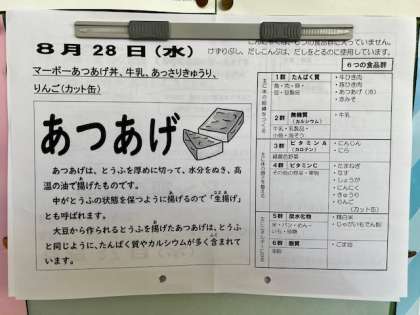 8月28日(水)
マーボーあつあげ丼、牛乳、あっさりきゅうり、
りんご(カット缶)
あつあげ
あつあげは、とうふを厚めに切って、水分をぬき、高
温の油で揚げたものです。
中がとうふの状態を保つように揚げるので「生揚げ」
とも呼ばれます。
大豆から作られるとうふを揚げたあつあげは、とうふ
と同じように、たんぱく質やカルシウムが多く含まれて
います。
けずりぶし、だしこんぶは、だしをとるのに使用しています。
6つの食品群
1群 たんぱく質
魚・肉・卵・
豆・豆製品
・牛ひき肉
・豚ひき肉
・あつあげ(冷)
・赤みそ
2群 無機質
(カルシウム)
牛乳・乳製品・
小魚・海そう
・牛乳
3群 ビタミンA
(カロテン)
緑黄色野菜
・にんじん
・にら
4群 ビタミンC
その他の野菜・果物
・たまねぎ
・なす
・しょうが
・にんにく
・きゅうり
・りんご
(カット缶)
5群 炭水化物
米・パン・めん・
いも・砂糖
・精白米
・じゃがいもでん粉
6群 脂質
油脂
・ごま油